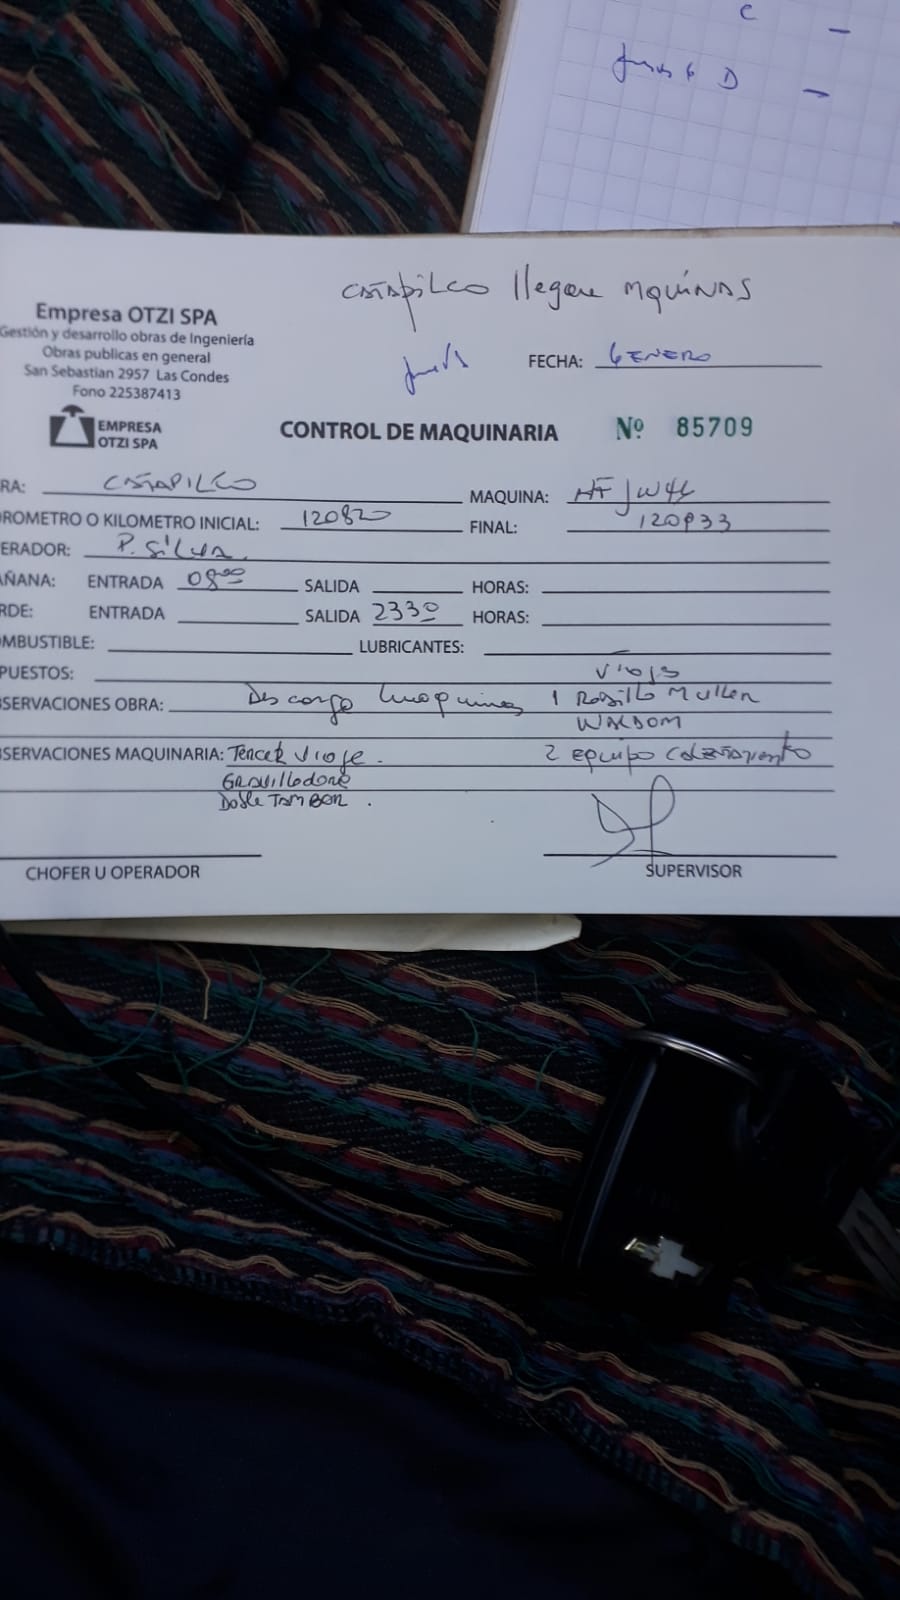 C —
Jueves 6 D —
CATAPILCO llegar MAQUINAS
Empresa OTZI SPA
Gestión y desarrollo obras de Ingeniería
Obras publicas en general
San Sebastian 2957 Las Condes
Fono 225387413
FECHA: 6 ENERO
EMPRESA
OTZI SPA
CONTROL DE MAQUINARIA Nº 85709
RA: CATAPILCO MAQUINA:
OROMETRO O KILOMETRO INICIAL: 120820 FINAL: 120933
ERADOR: P. SILVA
AÑANA: ENTRADA 0800 SALIDA HORAS:
RDE: ENTRADA SALIDA 2330 HORAS:
OMBUSTIBLE: LUBRICANTES:
PUESTOS: Viajes
SERVACIONES OBRA: Descarga maquinas 1 Rodillo Muller
SERVACIONES MAQUINARIA: Tercer Viaje. 2 equipo
GRAVILLADORA
Doble TAMBOR.
CHOFER U OPERADOR SUPERVISOR